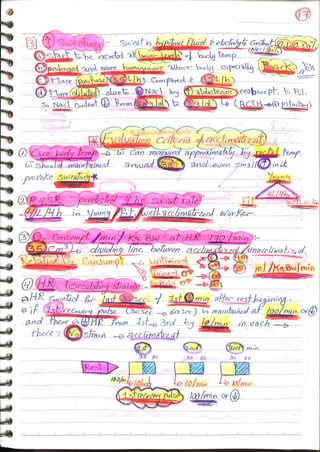 17
[3] ↑ Sweating: Sweat is hypotonic fluid & electrolyte content
a start to be excreted at lower levels of body temp.
b prolonged and more homogenous allover body especially Back
c More profuse
d More diluted due to ↓ NaCl by ↑ aldosterone reabsorpt. to
so NaCl content ↓ from
Evaluation criteria of acclimatizat
① Core body temp → w can measured approximately by rectal temp.
w should maintained around and even small ↑ in it
provoke sweating
Young
② P4SR "predicted 4hr sweat rate"
4L/4h in Young, Fit, well acclimatized worker
③ O2 Consumpt / min / Kg.Bw at HR 170/min:-
dividing line between acclimatized / unacclimatized.
Relative O2 Consumpt untrained
trained ♂
trained
ml/Kg.Bw/min
④ HR (circulating strain):-
HR counted for last 30 sec of 1st min after rest beginning.
if 1st recovery pulse (30sec → 60sec) is maintained at 100/min or ↓
and there is ↓ HR from 1st → 3rd by 10/min in each →
there's No strain → acclimatizat
1st 2nd 3rd min
30 60 30 60 30 60
Rest
→ 10/min → 10/min
1st recovery pulse 100/min or ↓